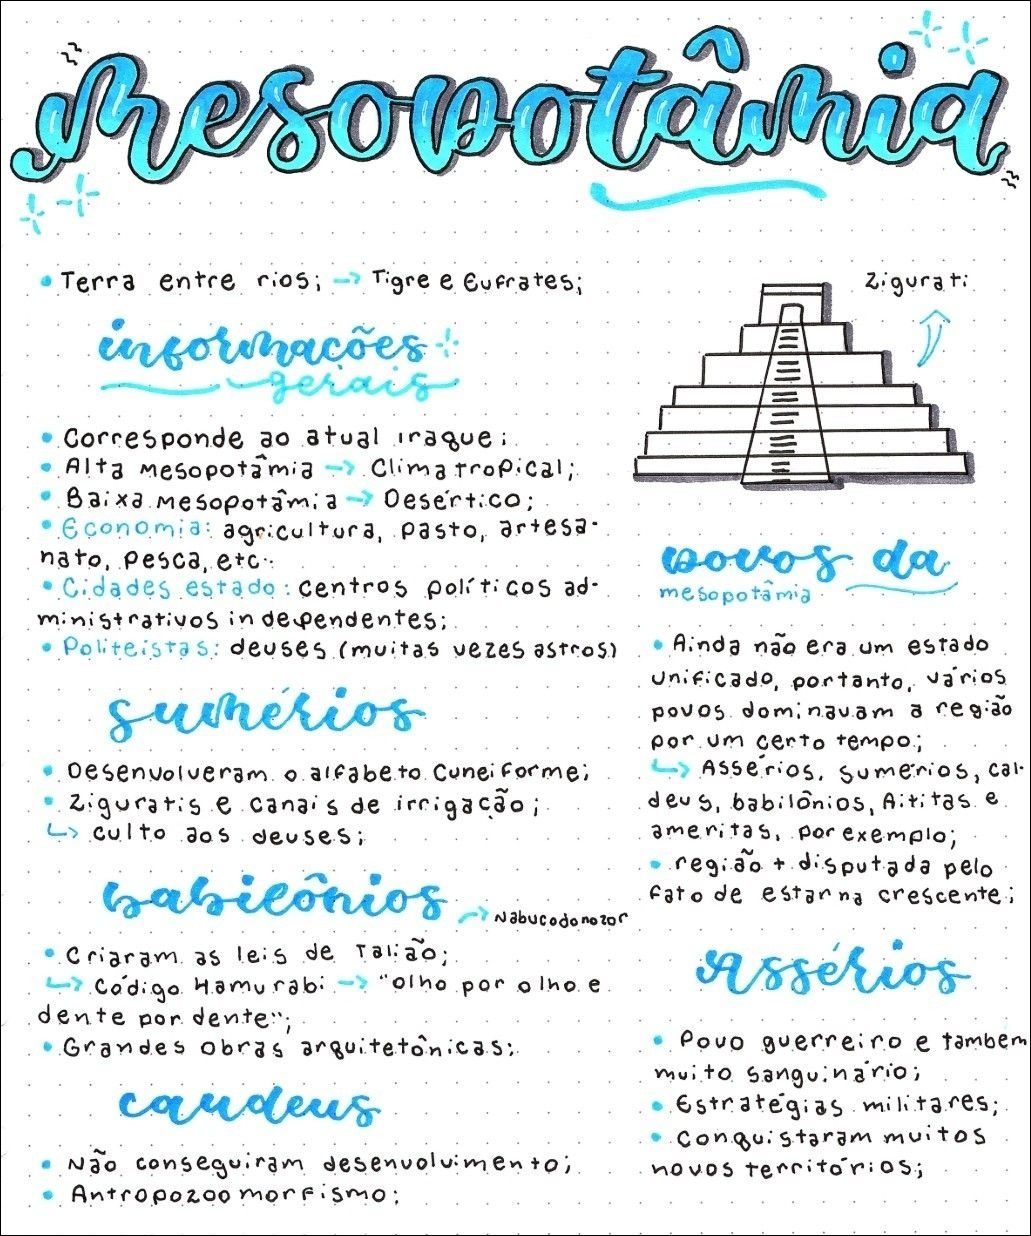 Mesopotâmia
• Terra entre rios; → Tigre e Eufrates;
Zigurat:
informações
gerais
• Corresponde ao atual Iraque;
• Alta Mesopotâmia → Clima tropical;
• Baixa Mesopotâmia → Desértico;
• Economia: agricultura, pasto, artesa-
nato, pesca, etc..
• Cidades estado: centros políticos ad-
ministrativos independentes;
• Politeistas: deuses (muitas vezes astros)
sumérios
• Desenvolveram o alfabeto Cuneiforme;
• Ziguratis e canais de irrigação;
↳ culto aos deuses;
babilônios → Nabucodonozor
• Criaram as leis de Talião;
↳ Código Hamurabi → "olho por olho e
dente por dente";
• Grandes obras arquitetônicas;
caudeus
• Não conseguiram desenvolvimento;
• Antropozoomorfismo;
povos da
mesopotâmia
• Ainda não era um estado
unificado, portanto, vários
povos dominavam a região
por um certo tempo;
↳ Assérios, sumérios, cal-
deus, babilônios, Aititas e
ameritas, por exemplo;
• região + disputada pelo
fato de estar na crescente;
Assérios
• Povo guerreiro e também
muito sanguinário;
• Estratégias militares;
• Conquistaram muitos
novos territórios;